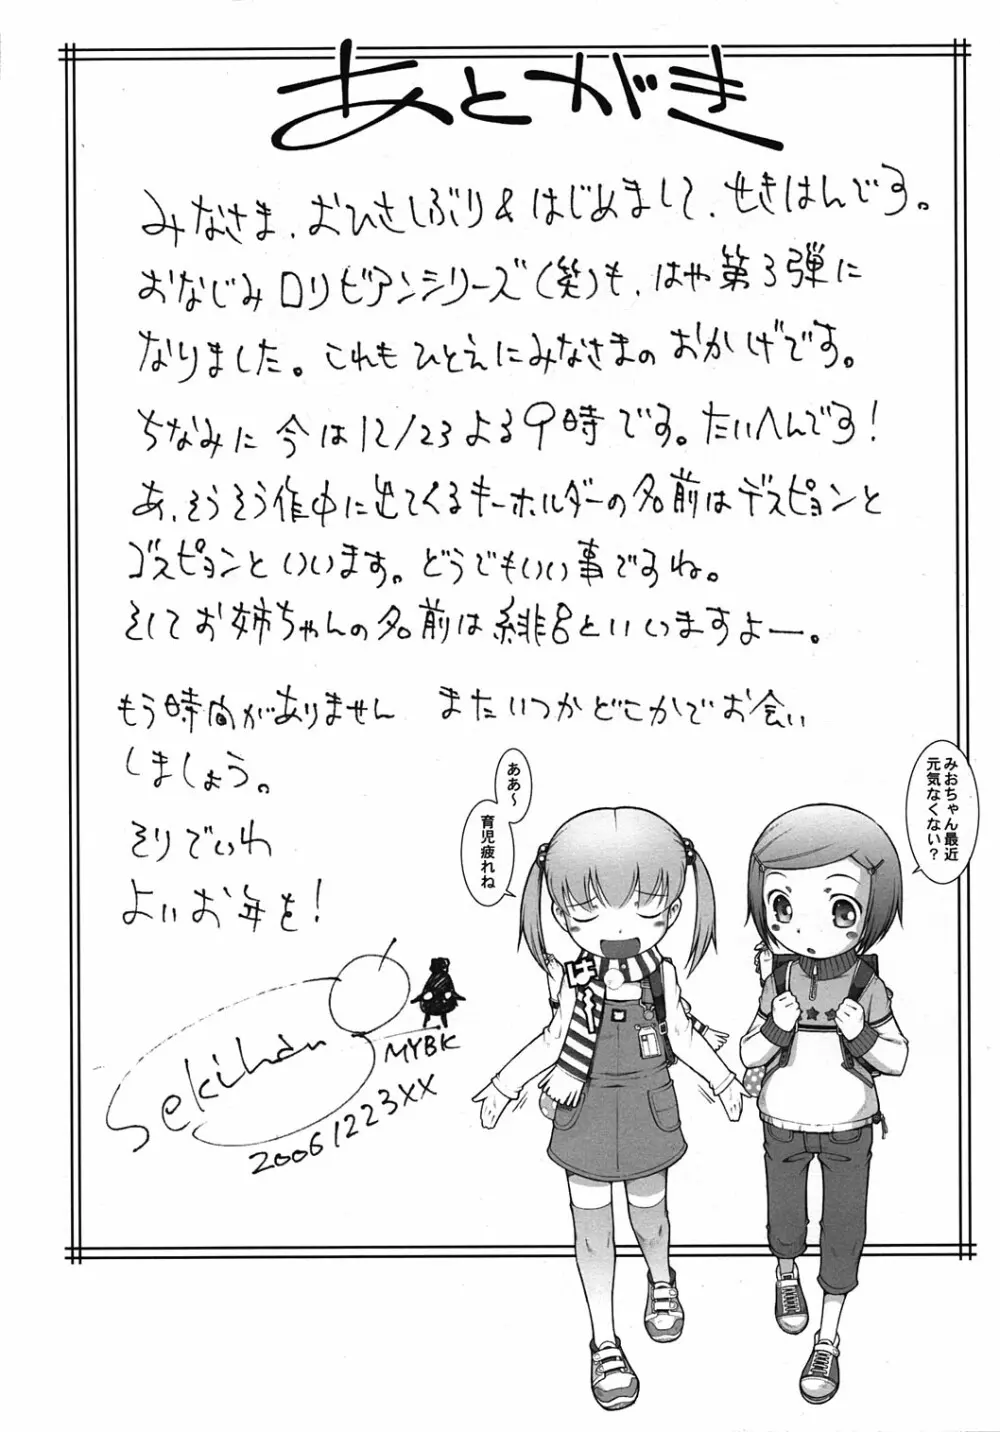 あとがき
みなさま、おひさしぶり&はじめまして、せきはんです。
おなじみロリビアンシリーズ(笑)も、はや第3弾に
なりました。これもひとえにみなさまのおかげです。
ちなみに今は12/23よる9時です。たいへんです!
あ、そうそう作中に出てくるキーホルダーの名前はデスピョンと
ゴスピョンといいます。どうでもいい事ですね。
そしてお姉ちゃんの名前は緋呂といいますよー。
もう時間がありません またいつかどこかでお会い
しましょう。
そりでいわ
よいお年を!
みおちゃん最近
元気なくない?
ああ~
育児疲れね
は~
sekihan
MYBK
20061223XX